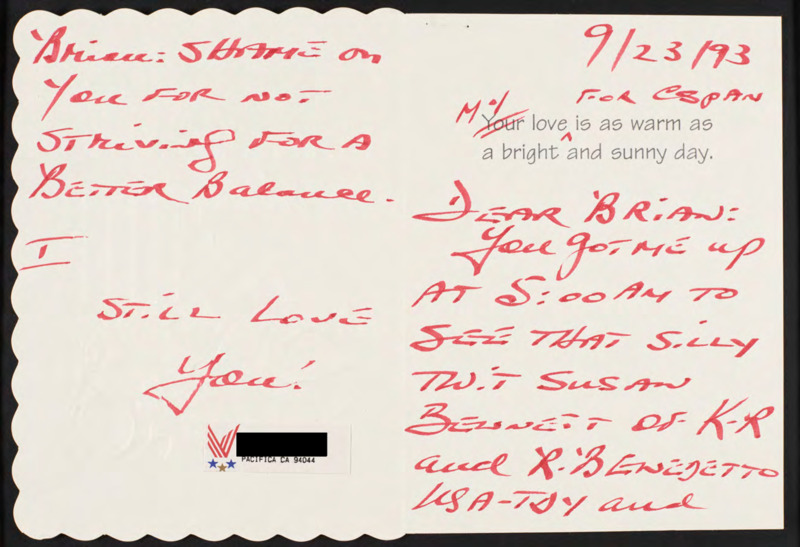 Brian: SHAME on
You FOR NOT
STRIVING FOR A
BETTER Balance.
I
STILL LOVE
You!
PACIFICA CA 94044
9/23/93
FOR CSPAN
My
Your love is as warm as
a bright and sunny day.
DEAR BRIAN:
You GOT ME up
AT 5:00 AM TO
SEE THAT SILLY
TWIT SUSAN
BENNETT OF K-R
and R. BENEDETTO
USA-TDY and